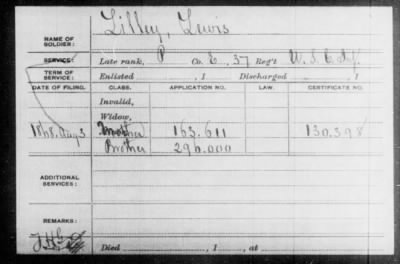 Lilley, Lewis
NAME OF
SOLDIER:
SERVICE: Late rank, P Co. E, 37 Reg't U.S.C. Inf.
TERM OF
SERVICE: Enlisted , 1 Discharged , 1
DATE OF FILING. CLASS. APPLICATION NO. LAW. CERTIFICATE NO.
Invalid,
Widow,
1868, Aug 3 Mother 163.611 130.398
Brother 296.000
ADDITIONAL
SERVICES:
REMARKS:
Died , 1 , at